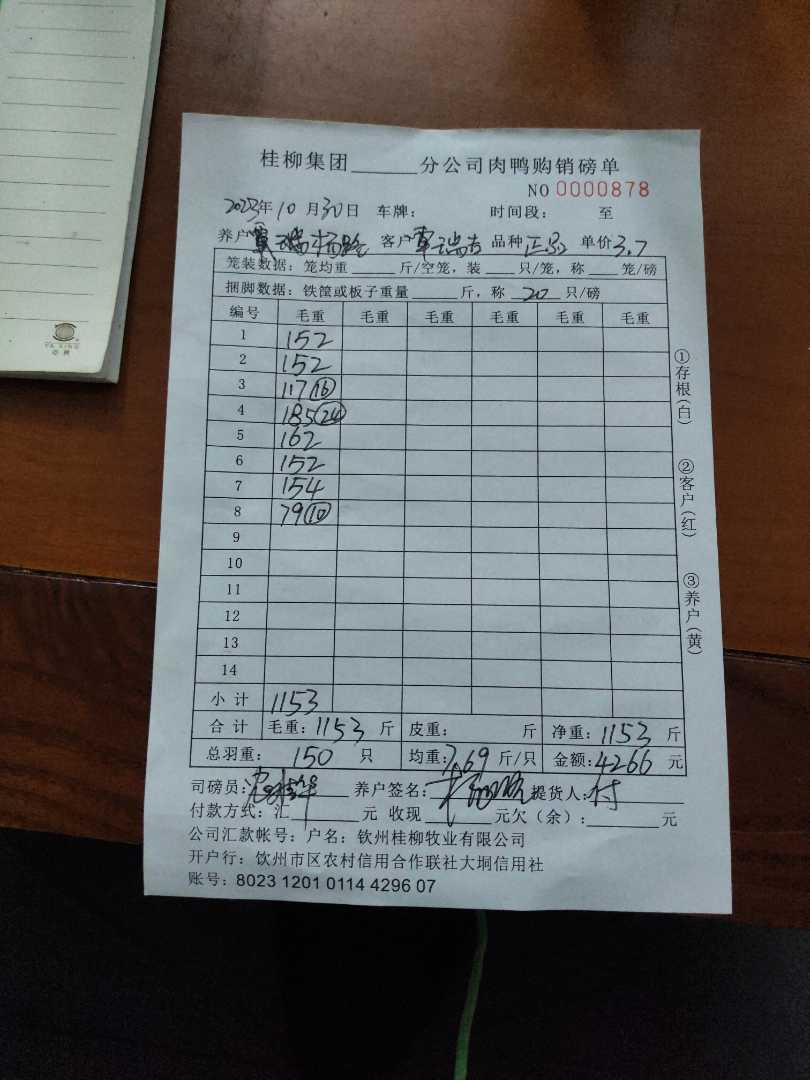 桂柳集团______分公司肉鸭购销磅单
NO 0000878
2023年10月30日 车牌: 时间段: 至
养户 客户覃瑞吉 品种 单价3.7
笼装数据:笼均重____斤/空笼,装___只/笼,称___笼/磅
捆脚数据:铁筐或板子重量_____斤,称 20 只/磅
编号 毛重 毛重 毛重 毛重 毛重 毛重
1 152
2 152
3 117 ⑯
4 185 ㉔
5 162
6 152
7 154
8 79 ⑩
9
10
11
12
13
14
小计 1153
合计 毛重:1153 斤 皮重: 斤 净重:1153 斤
总羽重: 150 只 均重:7.69 斤/只 金额:4266 元
司磅员: 养户签名: 提货人:付
付款方式:汇_______元 收现_______元欠(余):_______元
公司汇款帐号:户名:钦州桂柳牧业有限公司
开户行:钦州市区农村信用合作联社大垌信用社
账号:8023 1201 0114 4296 07
①存根(白)
②客户(红)
③养户(黄)